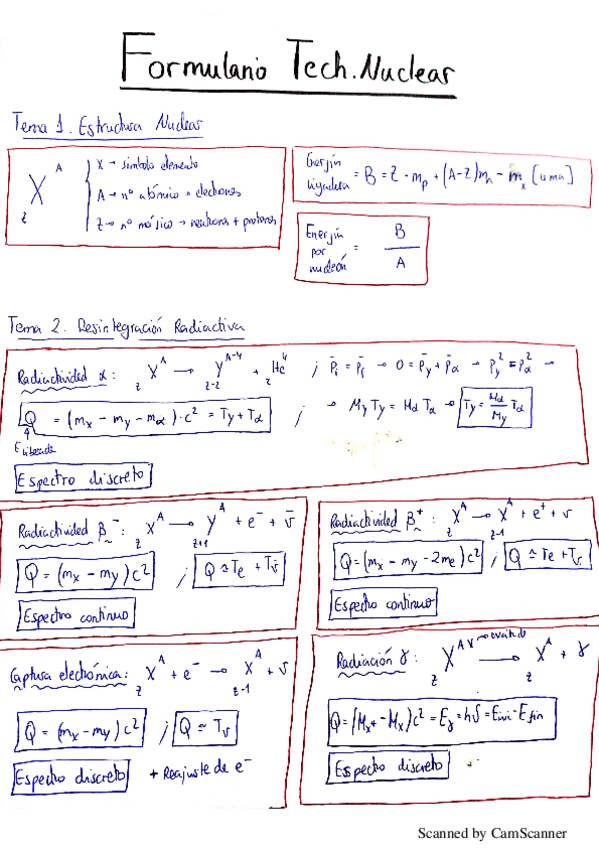 Formulario Tech. Nuclear
Tema 1. Estructura Nuclear
X A Z
X → símbolo elemento
A → nº atómico = electrones
Z → nº másico → neutrones + protones
Energía ligadura = B = Z · mp + (A-Z)mn - mx [uma]
Energía por nucleón = B / A
Tema 2. Desintegración Radiactiva
Radiactividad α: zX^A → z-2Y^A-4 + zHe^4 ; p̄i = p̄f → 0 = p̄y + p̄α → p²y = p²α →
Q = (mx - my - mα) · c² = Ty + Tα ; → My Ty = Mα Tα → Ty = Mα/My Tα
E liberada
Espectro discreto
Radiactividad β⁻: zX^A → z+1Y^A + e⁻ + ν̄
Q = (mx - my)c² ; Q ≃ Te + Tν̄
Espectro continuo
Radiactividad β⁺: zX^A → z-1X^A + e⁺ + ν
Q = (mx - my - 2me)c² ; Q ≃ Te + Tν
Espectro continuo
Captura electrónica: zX^A + e⁻ → z-1X^A + ν
Q = (mx - my)c² ; Q ≃ Tν
Espectro discreto + Reajuste de e⁻
Radiación γ: zX^A* → excitado → zX^A + γ
Q = (Mx* - Mx)c² = Eγ = hν = Eini - Efin
Espectro discreto
Scanned by CamScanner